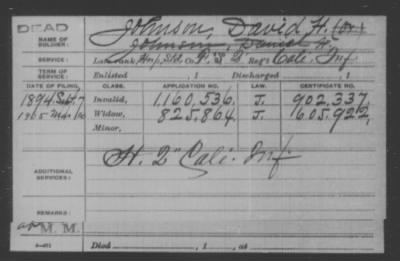 DEAD
NAME OF SOLDIER: Johnson, David H. (or)
Johnson, Daniel H.
SERVICE: Late rank, Hosp. Std. Co. F. & S. 2 Reg't Cali. Inf.
TERM OF SERVICE: Enlisted , 1 Discharged , 1
DATE OF FILING. CLASS. APPLICATION NO. LAW. CERTIFICATE NO.
1894 Sept 7 Invalid, 1160,536. J. 902,337.
1905 Mar Widow, 825,864. J. 605,922,
Minor,
ADDITIONAL SERVICES: H. 2" Cali. Inf.
REMARKS:
M. M.
Died , 1 , at